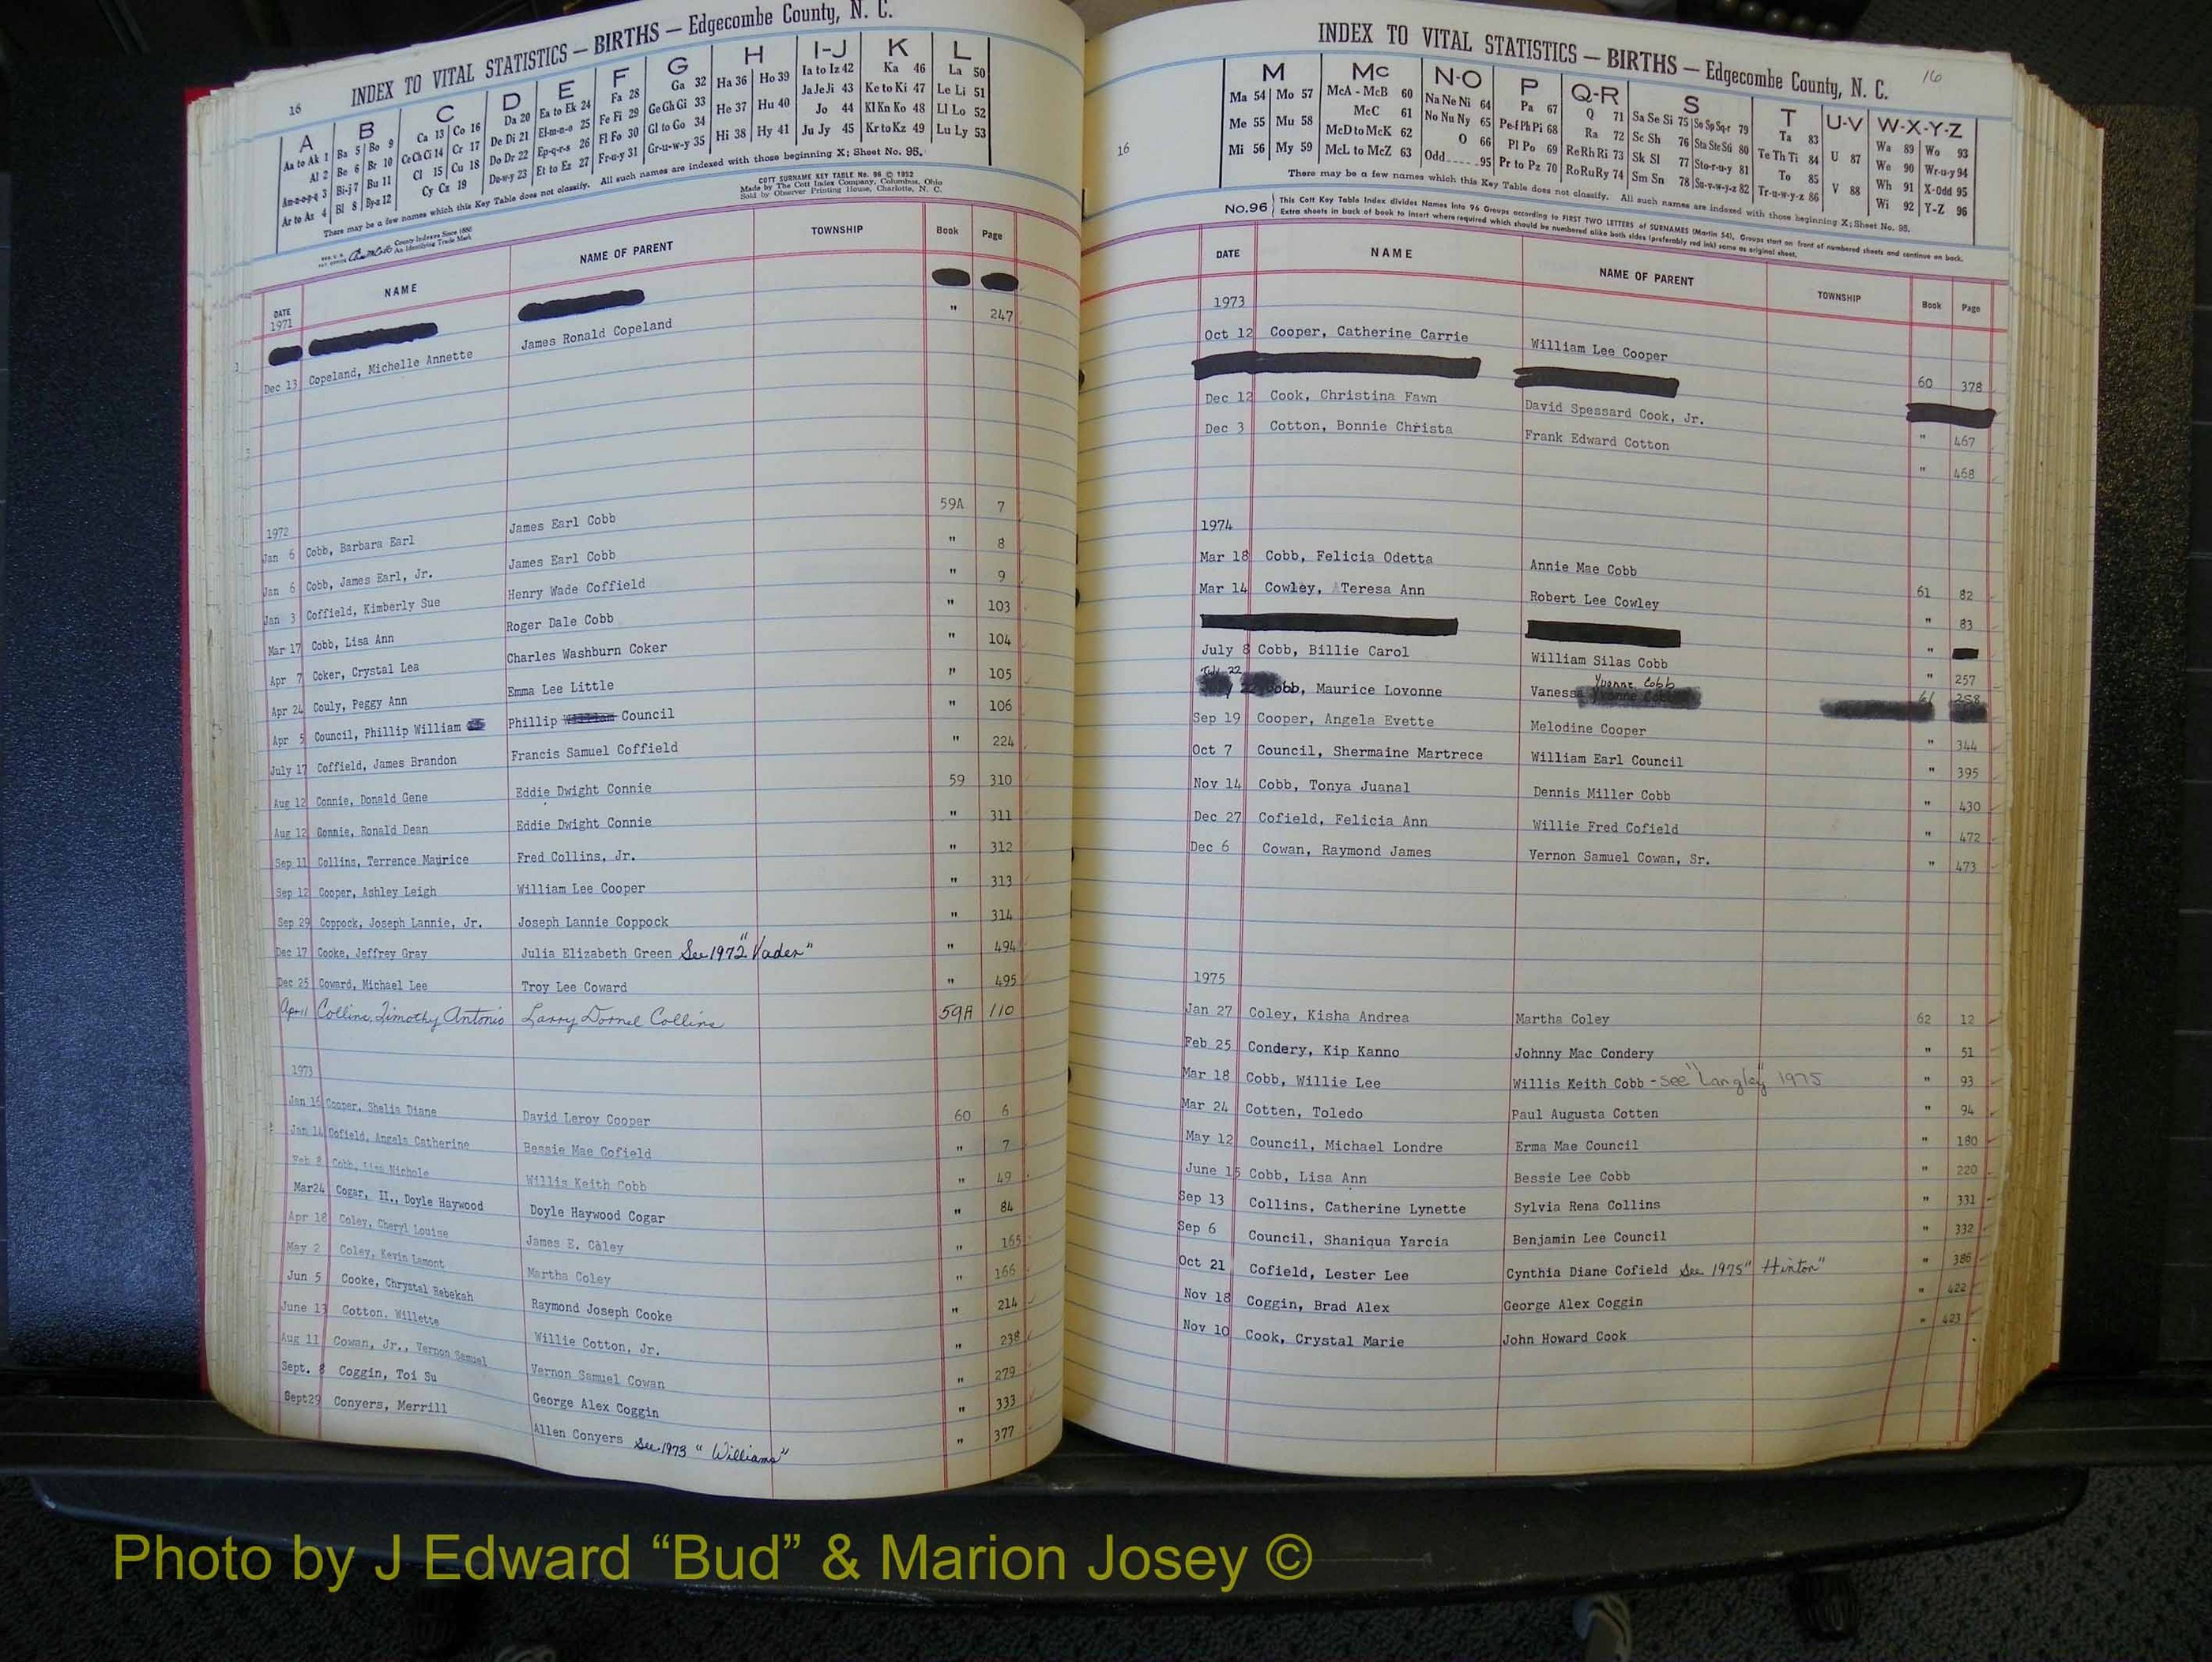 16 INDEX TO VITAL STATISTICS — BIRTHS — Edgecombe County, N. C.
A B C D E F G H I-J K L
Aa to Ak 1 Ba 5 Bo 9 Ca 13 Co 16 Da 20 Ea to Ek 24 Fa 28 Ga 32 Ha 36 Ho 39 Ia to Iz 42 Ka 46 La 50
Al 2 Be 6 Br 10 Ce Ch Ci 14 Cr 17 De Di 21 El-m-n-o 25 Fe Fi 29 Ge Gh Gi 33 He 37 Hu 40 Ja Je Ji 43 Ke to Ki 47 Le Li 51
Am-n-o-p-q 3 Bi-j 7 Bu 11 Cl 15 Cu 18 Do Dr 22 Ep-q-r-s 26 Fl Fo 30 Gl to Go 34 Hi 38 Hy 41 Jo 44 Kl Kn Ko 48 Ll Lo 52
Ar to Az 4 Bl 8 By-z 12 Cy Cz 19 Du-w-y 23 Et to Ez 27 Fr-u-y 31 Gr-u-w-y 35 Ju Jy 45 Kr to Kz 49 Lu Ly 53
There may be a few names which this Key Table does not classify. All such names are indexed with those beginning X; Sheet No. 95.
COTT SURNAME KEY TABLE No. 96 © 1952
Made by The Cott Index Company, Columbus, Ohio
Sold by Observer Printing House, Charlotte, N. C.
County Indexes Since 1880
An Identifying Trade Mark
DATE NAME NAME OF PARENT TOWNSHIP Book Page
1971
Dec 13 Copeland, Michelle Annette James Ronald Copeland " 247
1972
Jan 6 Cobb, Barbara Earl James Earl Cobb 59A 7
Jan 6 Cobb, James Earl, Jr. James Earl Cobb " 8
Jan 3 Coffield, Kimberly Sue Henry Wade Coffield " 9
Mar 17 Cobb, Lisa Ann Roger Dale Cobb " 103
Apr 7 Coker, Crystal Lea Charles Washburn Coker " 104
Apr 24 Couly, Peggy Ann Emma Lee Little " 105
Apr 5 Council, Phillip William Phillip William Council " 106
July 17 Coffield, James Brandon Francis Samuel Coffield " 224
Aug 12 Connie, Donald Gene Eddie Dwight Connie 59 310
Aug 12 Connie, Ronald Dean Eddie Dwight Connie " 311
Sep 11 Collins, Terrence Maurice Fred Collins, Jr. " 312
Sep 12 Cooper, Ashley Leigh William Lee Cooper " 313
Sep 29 Coppock, Joseph Lannie, Jr. Joseph Lannie Coppock " 314
Dec 17 Cooke, Jeffrey Gray Julia Elizabeth Green See 1972 "Vader" " 494
Dec 25 Coward, Michael Lee Troy Lee Coward " 495
April Collins, Timothy Antonio Larry Dornel Collins 59A 110
1973
Jan 16 Cooper, Shelia Diane David Leroy Cooper 60 6
Jan 14 Cofield, Angela Catherine Bessie Mae Cofield " 7
Feb 8 Cobb, Lisa Nichole Willis Keith Cobb " 49
Mar24 Cogar, II., Doyle Haywood Doyle Haywood Cogar " 84
Apr 18 Coley, Cheryl Louise James E. Coley " 165
May 2 Coley, Kevin Lamont Martha Coley " 166
Jun 5 Cooke, Chrystal Rebekah Raymond Joseph Cooke " 214
June 13 Cotton. Willette Willie Cotton, Jr. " 238
Aug 11 Cowan, Jr., Vernon Samuel Vernon Samuel Cowan " 279
Sept. 8 Coggin, Toi Su George Alex Coggin " 333
Sept29 Conyers, Merrill Allen Conyers See 1973 "Williams" " 377
INDEX TO VITAL STATISTICS — BIRTHS — Edgecombe County, N. C. 16
16
M Mc N-O P Q-R S T U-V W-X-Y-Z
Ma 54 Mo 57 McA - McB 60 Na Ne Ni 64 Pa 67 Q 71 Sa Se Si 75 So Sp Sq-r 79 Ta 83 U 87 Wa 89 Wo 93
Me 55 Mu 58 McC 61 No Nu Ny 65 Pe-f Ph Pi 68 Ra 72 Sc Sh 76 Sta Ste Sti 80 Te Th Ti 84 V 88 We 90 Wr-u-y 94
Mi 56 My 59 McD to McK 62 O 66 Pl Po 69 Re Rh Ri 73 Sk Sl 77 Sto-r-u-y 81 To 85 Wh 91 X-Odd 95
McL to McZ 63 Odd 95 Pr to Pz 70 Ro Ru Ry 74 Sm Sn 78 Su-v-w-y-z 82 Tr-u-w-y-z 86 Wi 92 Y-Z 96
There may be a few names which this Key Table does not classify. All such names are indexed with those beginning X; Sheet No. 95.
No.96 This Cott Key Table Index divides Names into 96 Groups according to FIRST TWO LETTERS of SURNAMES (Martin 54). Groups start on front of numbered sheets and continue on back.
Extra sheets in back of book to insert where required which should be numbered alike both sides (preferably red ink) same as original sheet.
DATE NAME NAME OF PARENT TOWNSHIP Book Page
1973
Oct 12 Cooper, Catherine Carrie William Lee Cooper 60 378
Dec 12 Cook, Christina Fawn David Spessard Cook, Jr. " 467
Dec 3 Cotton, Bonnie Christa Frank Edward Cotton " 468
1974
Mar 18 Cobb, Felicia Odetta Annie Mae Cobb 61 82
Mar 14 Cowley, Teresa Ann Robert Lee Cowley " 83
"
July 8 Cobb, Billie Carol William Silas Cobb " 257
July 22 Cobb, Maurice Lovonne Vanessa Yvonne Cobb 61 258
Sep 19 Cooper, Angela Evette Melodine Cooper " 344
Oct 7 Council, Shermaine Martrece William Earl Council " 395
Nov 14 Cobb, Tonya Juanal Dennis Miller Cobb " 430
Dec 27 Cofield, Felicia Ann Willie Fred Cofield " 472
Dec 6 Cowan, Raymond James Vernon Samuel Cowan, Sr. " 473
1975
Jan 27 Coley, Kisha Andrea Martha Coley 62 12
Feb 25 Condery, Kip Kanno Johnny Mac Condery " 51
Mar 18 Cobb, Willie Lee Willis Keith Cobb - see "Langley" 1975 " 93
Mar 24 Cotten, Toledo Paul Augusta Cotten " 94
May 12 Council, Michael Londre Erma Mae Council " 180
June 15 Cobb, Lisa Ann Bessie Lee Cobb " 220
Sep 13 Collins, Catherine Lynette Sylvia Rena Collins " 331
Sep 6 Council, Shaniqua Yarcia Benjamin Lee Council " 332
Oct 21 Cofield, Lester Lee Cynthia Diane Cofield See 1975 "Hinton" " 386
Nov 18 Coggin, Brad Alex George Alex Coggin " 422
Nov 10 Cook, Crystal Marie John Howard Cook " 423
Photo by J Edward “Bud” & Marion Josey ©